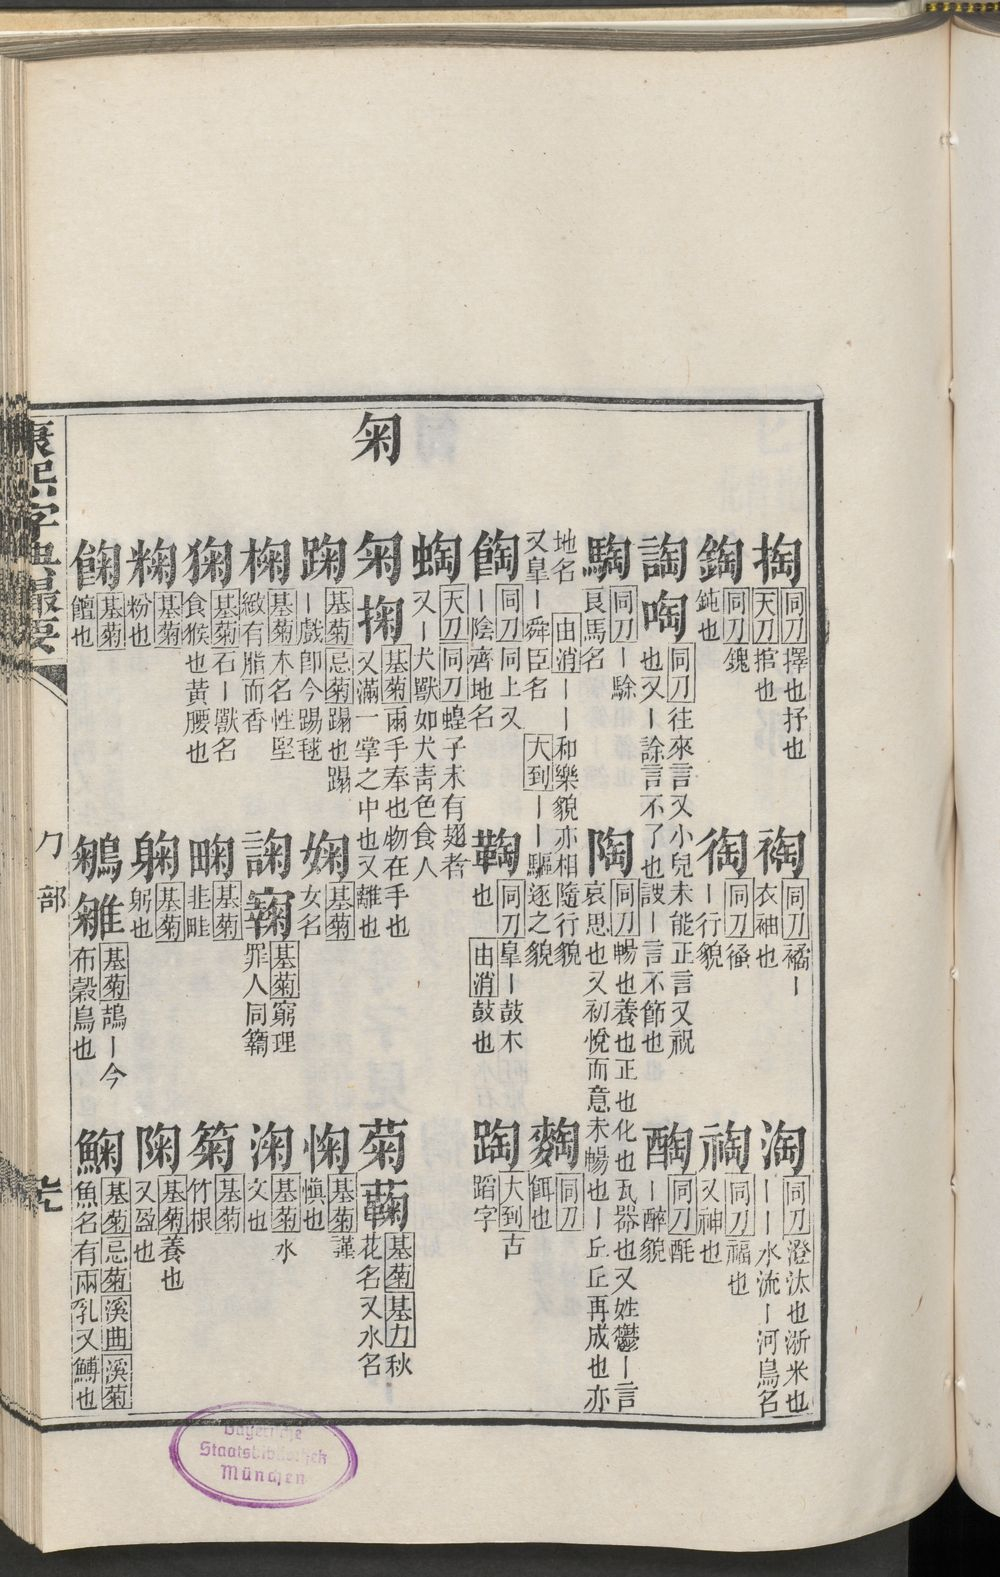 掏 同刀擇也抒也 天刀掐也
裪 同刀𧛔丨衣袖也
淘 同刀澄汰也浙米也丨丨水流丨河鳥名
鋾 同刀鎴鈍也
徟 同刀徭丨行貌
祹 同刀福也又神也
詾啕 同刀往來言又小兒未能正言又祝也又丨詥言不了也謏丨言不節也
醄 同刀酕丨醉貌
騊 同刀丨駼良馬名
陶 同刀暢也養也正也化也瓦器也又姓鬱丨言哀思也又初悅而意未暢也丨丘丘再成也亦
地名 由消丨丨和樂貌亦相隨行貌
又皐丨舜臣名 大到丨丨驅逐之貌
麴 同刀餌也
餡 同刀同上又丨陰齊地名
鞫 同刀皐丨鼓木也 由消鼓也
踘 大到古蹈字
蜪 天刀同刀蝗子未有翅者又丨犬獸如犬靑色食人
匊
匊掬 基菊兩手奉也物在手也又滿一掌之中也又離也
菊蘜 基菊基力秋花名又水名
踘 基菊忌菊蹋也蹋丨戲卽今踢毬
婅 基菊女名
㥌 基菊謹愼也
椈 基菊木名性堅緻有脂而香
諊𥷚 基菊窮理罪人同籟
淗 基菊水文也
狪 基菊石丨獸名食猴也黃腰也
畮 基菊韭畦
箘 基菊竹根
粷 基菊粉也
躹 基菊躬也
陱 基菊養也又盈也
䬜 基菊饘也
鵴䳔 基菊鴶丨今布穀鳥也
鮈 基菊忌菊溪曲溪菊魚名有兩乳又鱄也
康熙字典撮要
勹部
Bayerische
Staatsbibliothek
München